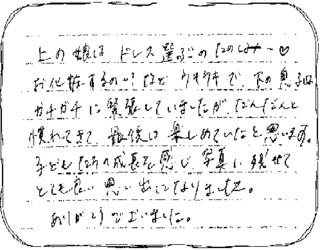 上の娘は ドレス選ぶの たのしみ〜♡
お化粧するの!? など ウキウキで 下の息子は
ガチガチに緊張していましたが だんだんと
慣れてきて 最後は楽しめていたと思います。
子どもたちの成長を感じ、写真に残せて
とても良い思い出になりました。
ありがとうございました。